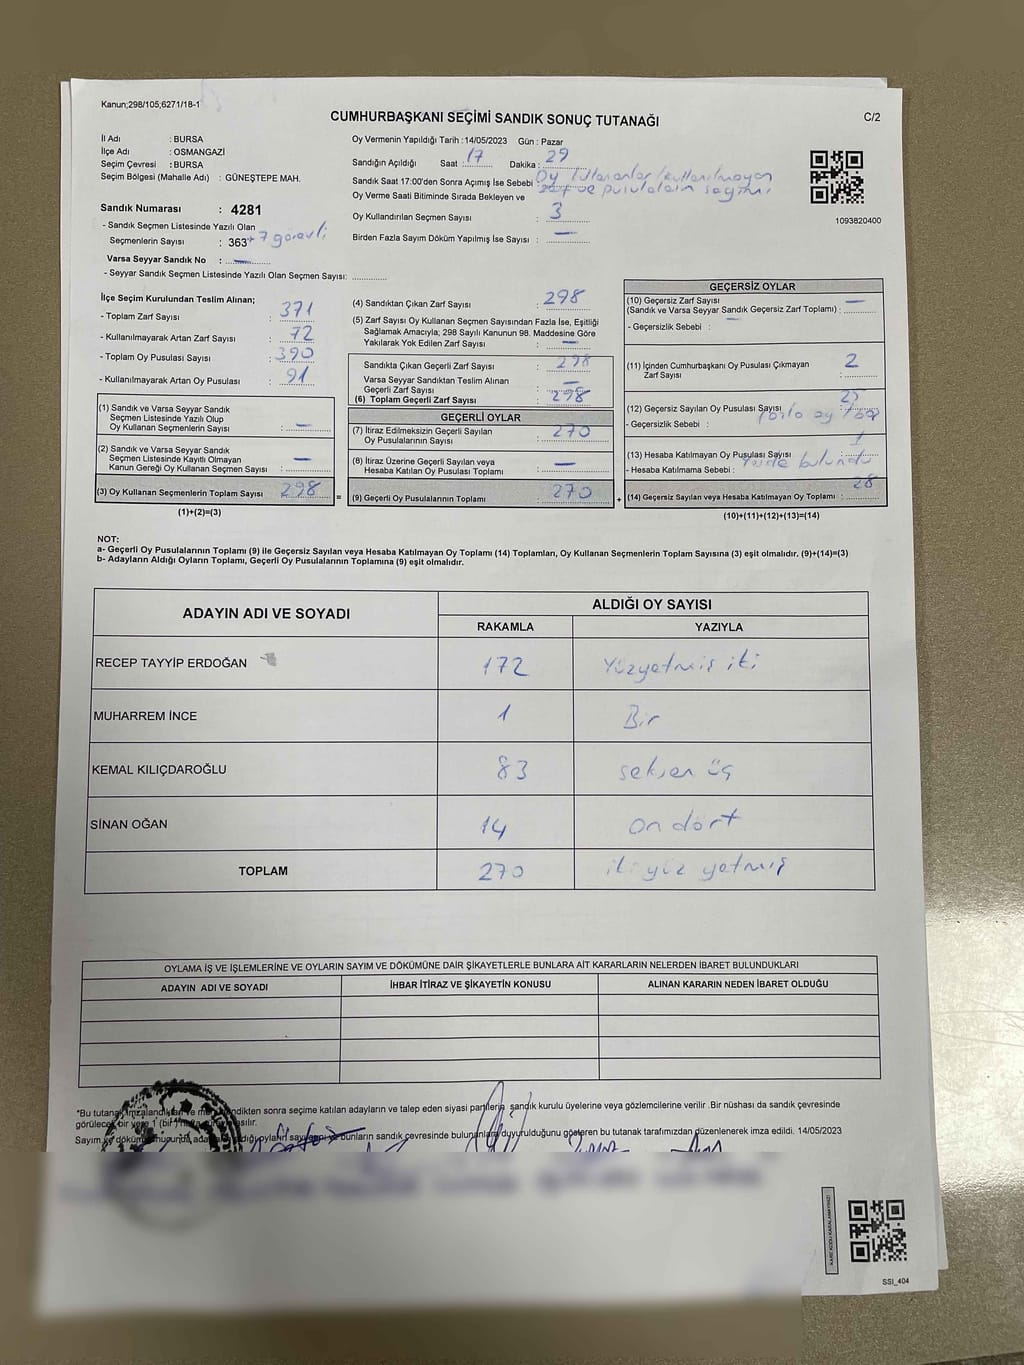 Kanun;298/105;6271/18-1
CUMHURBAŞKANI SEÇİMİ SANDIK SONUÇ TUTANAĞI
C/2
İl Adı : BURSA
İlçe Adı : OSMANGAZİ
Seçim Çevresi : BURSA
Seçim Bölgesi (Mahalle Adı) : GÜNEŞTEPE MAH.
Sandık Numarası : 4281
- Sandık Seçmen Listesinde Yazılı Olan
Seçmenlerin Sayısı : 363 + 7 görevli
Varsa Seyyar Sandık No : —
- Seyyar Sandık Seçmen Listesinde Yazılı Olan Seçmen Sayısı:
Oy Vermenin Yapıldığı Tarih :14/05/2023 Gün : Pazar
Sandığın Açıldığı Saat : 17 Dakika : 29
Sandık Saat 17:00'den Sonra Açımış İse Sebebi : Oy kullananlar/kullanılmayan
zarf ve pusulaların sayımı
Oy Verme Saati Bitiminde Sırada Bekleyen ve
Oy Kullandırılan Seçmen Sayısı : 3
Birden Fazla Sayım Döküm Yapılmış İse Sayısı : —
1093820400
İlçe Seçim Kurulundan Teslim Alınan;
- Toplam Zarf Sayısı : 371
- Kullanılmayarak Artan Zarf Sayısı : 72
- Toplam Oy Pusulası Sayısı : 390
- Kullanılmayarak Artan Oy Pusulası : 91
(1) Sandık ve Varsa Seyyar Sandık
Seçmen Listesinde Yazılı Olup
Oy Kullanan Seçmenlerin Sayısı : —
(2) Sandık ve Varsa Seyyar Sandık
Seçmen Listesinde Kayıtlı Olmayan
Kanun Gereği Oy Kullanan Seçmen Sayısı : —
(3) Oy Kullanan Seçmenlerin Toplam Sayısı : 298 =
(1)+(2)=(3)
(4) Sandıktan Çıkan Zarf Sayısı : 298
(5) Zarf Sayısı Oy Kullanan Seçmen Sayısından Fazla İse, Eşitliği
Sağlamak Amacıyla; 298 Sayılı Kanunun 98. Maddesine Göre
Yakılarak Yok Edilen Zarf Sayısı : —
Sandıkta Çıkan Geçerli Zarf Sayısı : 298
Varsa Seyyar Sandıktan Teslim Alınan
Geçerli Zarf Sayısı : —
(6) Toplam Geçerli Zarf Sayısı : 298
GEÇERLİ OYLAR
(7) İtiraz Edilmeksizin Geçerli Sayılan
Oy Pusulalarının Sayısı : 270
(8) İtiraz Üzerine Geçerli Sayılan veya
Hesaba Katılan Oy Pusulası Sayısı : —
(9) Geçerli Oy Pusulalarının Toplamı : 270 +
GEÇERSİZ OYLAR
(10) Geçersiz Zarf Sayısı —
(Sandık ve Varsa Seyyar Sandık Geçersiz Zarf Toplamı) :
- Geçersizlik Sebebi : —
(11) İçinden Cumhurbaşkanı Oy Pusulası Çıkmayan
Zarf Sayısı : 2
(12) Geçersiz Sayılan Oy Pusulası Sayısı : 25
- Geçersizlik Sebebi : oy
(13) Hesaba Katılmayan Oy Pusulası Sayısı : 1
- Hesaba Katılmama Sebebi : bulundu
(14) Geçersiz Sayılan veya Hesaba Katılmayan Oy Toplamı : 28
(10)+(11)+(12)+(13)=(14)
NOT:
a- Geçerli Oy Pusulalarının Toplamı (9) ile Geçersiz Sayılan veya Hesaba Katılmayan Oy Toplamı (14) Toplamları, Oy Kullanan Seçmenlerin Toplam Sayısına (3) eşit olmalıdır. (9)+(14)=(3)
b- Adayların Aldığı Oyların Toplamı, Geçerli Oy Pusulalarının Toplamına (9) eşit olmalıdır.
ADAYIN ADI VE SOYADI ALDIĞI OY SAYISI
RAKAMLA YAZIYLA
RECEP TAYYİP ERDOĞAN 172 Yüzyetmiş iki
MUHARREM İNCE 1 Bir
KEMAL KILIÇDAROĞLU 83 seksen üç
SİNAN OĞAN 14 on dört
TOPLAM 270 iki yüz yetmiş
OYLAMA İŞ VE İŞLEMLERİNE VE OYLARIN SAYIM VE DÖKÜMÜNE DAİR ŞİKAYETLERLE BUNLARA AİT KARARLARIN NELERDEN İBARET BULUNDUKLARI
ADAYIN ADI VE SOYADI İHBAR İTİRAZ VE ŞİKAYETİN KONUSU ALINAN KARARIN NEDEN İBARET OLDUĞU
*Bu tutanak imzalandıktan ve sonra seçime katılan adayların ve talep eden siyasi partilerin sandık kurulu üyelerine veya gözlemcilerine verilir .Bir nüshası da sandık çevresinde
görülecek bir yere 1 (bir) hafta asılır.
Sayım ve dökümün bunların sandık çevresinde bulunanlara duyurulduğunu gösteren bu tutanak tarafımızdan düzenlenerek imza edildi. 14/05/2023
KARE KODU KARALAMAYINIZ!
SSI_404